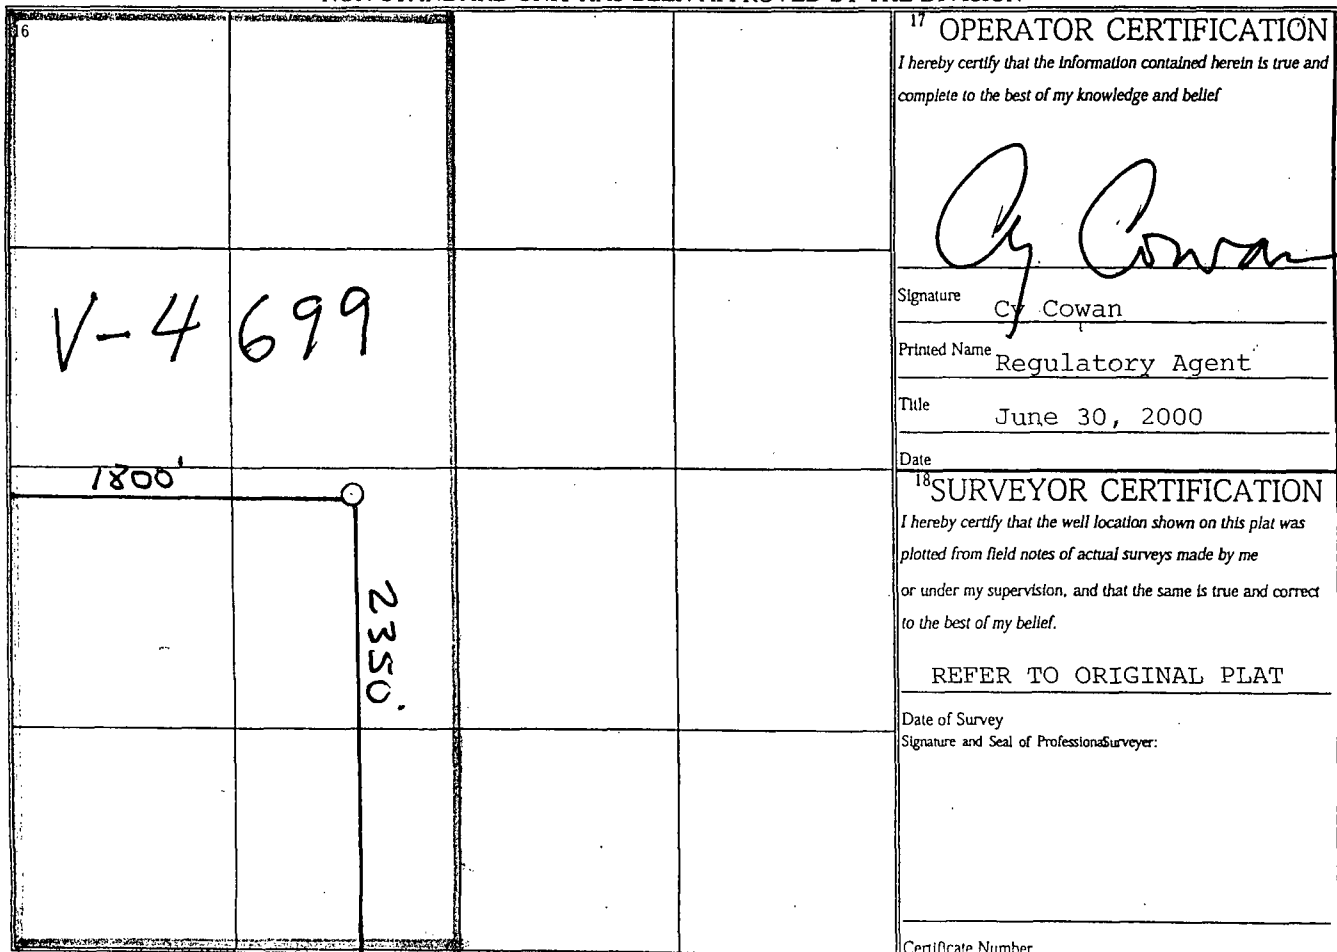 16
V-4699
1800'
2350'
17 OPERATOR CERTIFICATION
I hereby certify that the information contained herein is true and
complete to the best of my knowledge and belief
Cy Cowan
Signature
Cy Cowan
Printed Name
Regulatory Agent
Title
June 30, 2000
Date
18 SURVEYOR CERTIFICATION
I hereby certify that the well location shown on this plat was
plotted from field notes of actual surveys made by me
or under my supervision, and that the same is true and correct
to the best of my belief.
REFER TO ORIGINAL PLAT
Date of Survey
Signature and Seal of ProfessionaSurveyer:
Certificate Number